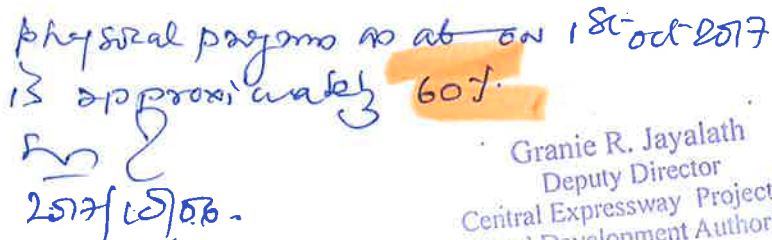 physical progress as at on 1st Oct 2017
is approximately 60%.
2017/10/06.
Granie R. Jayalath
Deputy Director
Central Expressway Project
Development Author